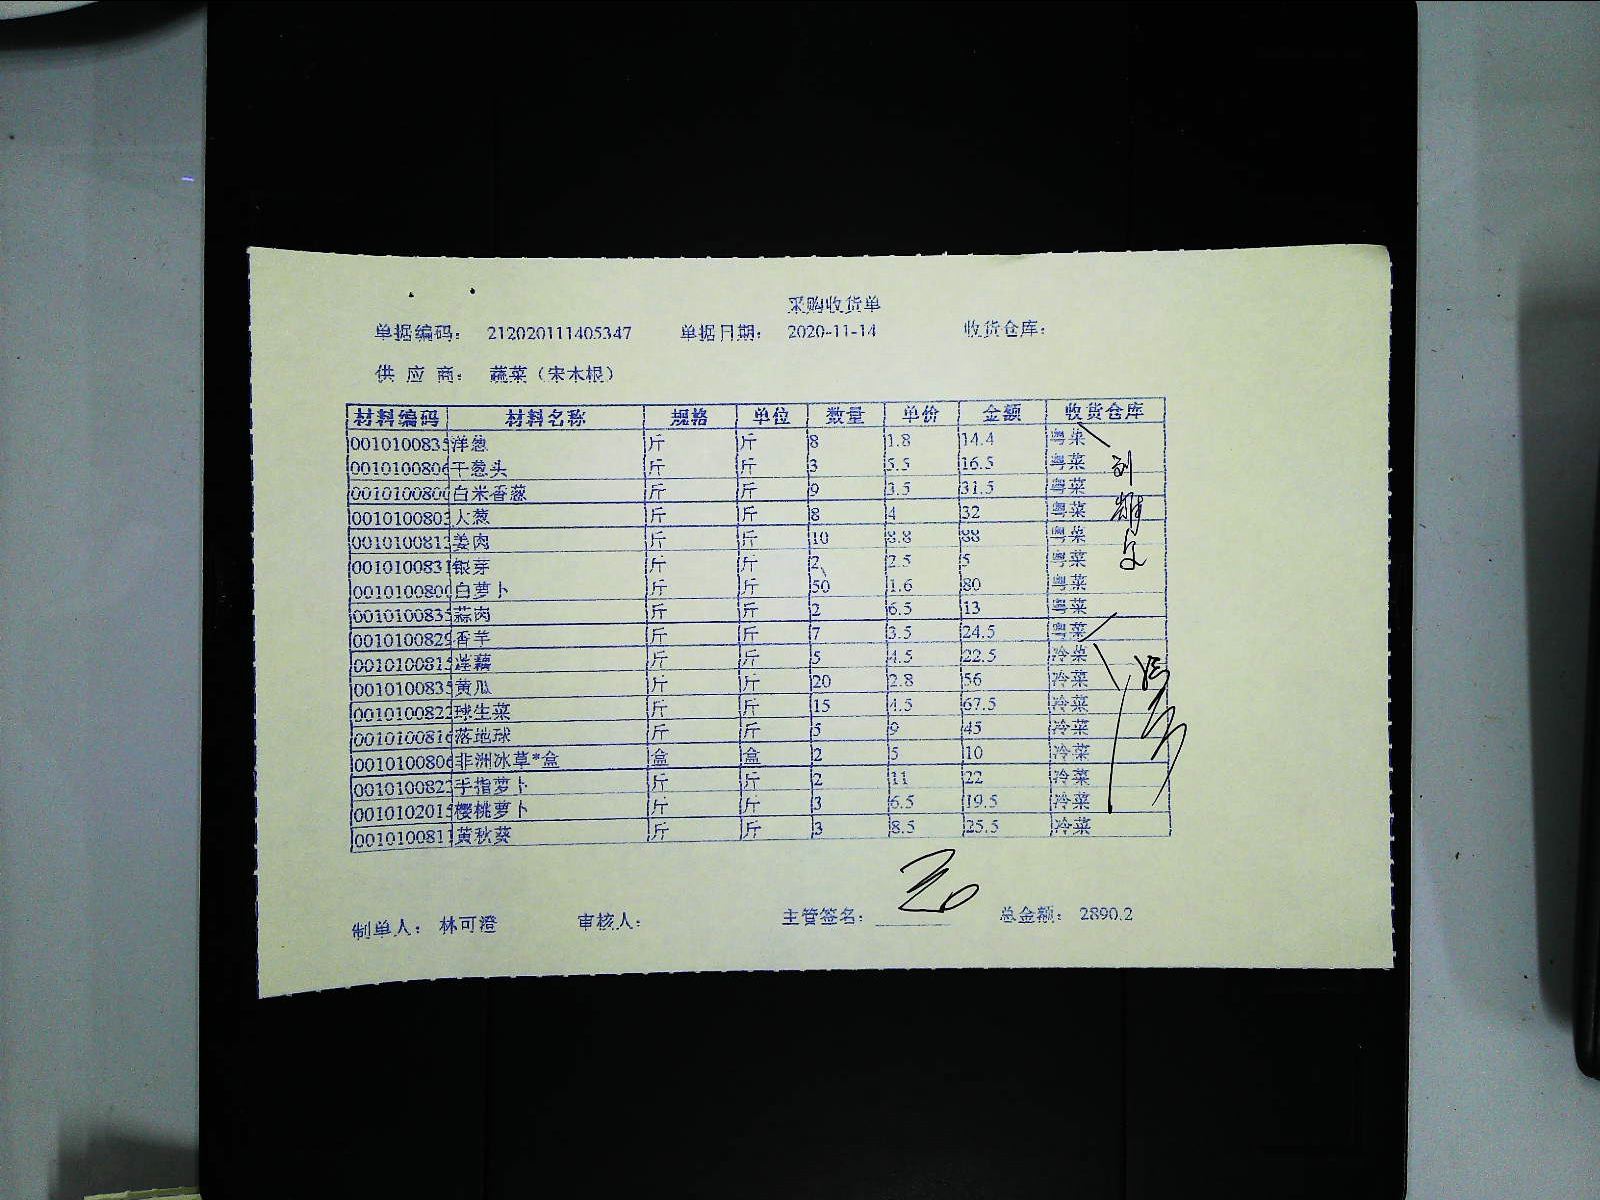 采购收货单
单据编码： 212020111405347 单据日期： 2020-11-14 收货仓库：
供 应 商： 蔬菜（宋木根）
材料编码 材料名称 规格 单位 数量 单价 金额 收货仓库
0010100835 洋葱 斤 斤 8 1.8 14.4 粤菜
0010100806 干葱头 斤 斤 3 5.5 16.5 粤菜
0010100800 白米香葱 斤 斤 9 3.5 31.5 粤菜
0010100803 大葱 斤 斤 8 4 32 粤菜
0010100813 姜肉 斤 斤 10 8.8 88 粤菜
0010100831 银芽 斤 斤 2 2.5 5 粤菜
0010100800 白萝卜 斤 斤 50 1.6 80 粤菜
0010100835 蒜肉 斤 斤 2 6.5 13 粤菜
0010100829 香芋 斤 斤 7 3.5 24.5 粤菜
0010100815 莲藕 斤 斤 5 4.5 22.5 冷菜
0010100835 黄瓜 斤 斤 20 2.8 56 冷菜
0010100822 球生菜 斤 斤 15 4.5 67.5 冷菜
0010100816 落地球 斤 斤 5 9 45 冷菜
0010100806 非洲冰草*盒 盒 盒 2 5 10 冷菜
0010100823 手指萝卜 斤 斤 2 11 22 冷菜
0010102015 樱桃萝卜 斤 斤 3 6.5 19.5 冷菜
0010100811 黄秋葵 斤 斤 3 8.5 25.5 冷菜
制单人： 林可澄 审核人： 主管签名： 总金额： 2890.2